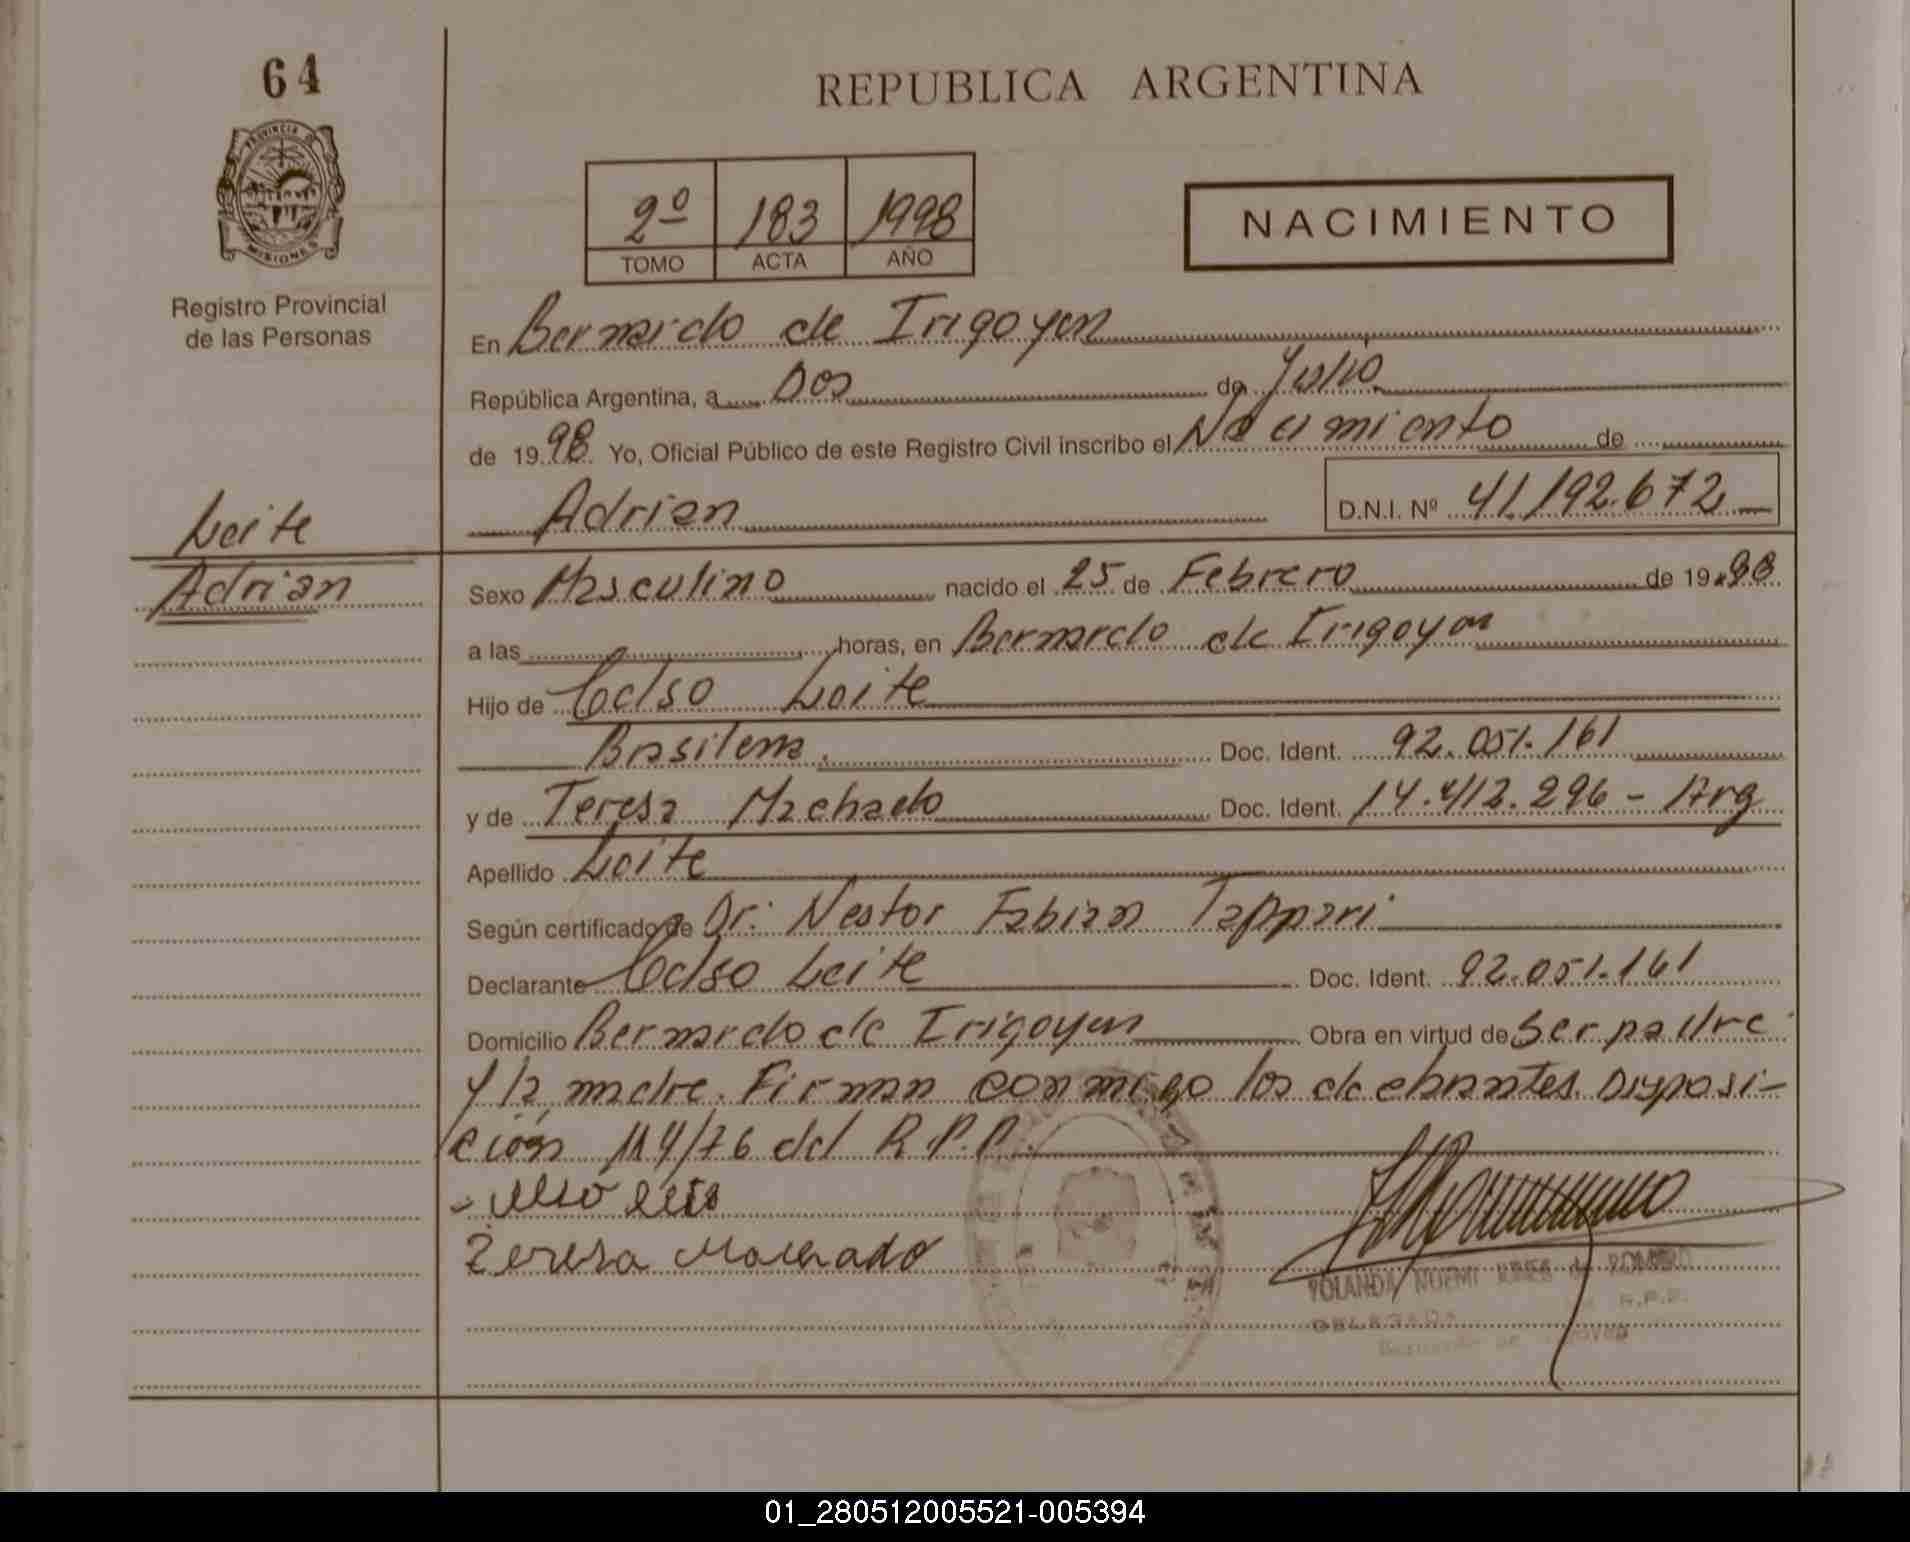 64
PROVINCIA DE
MISIONES
Registro Provincial
de las Personas
REPUBLICA ARGENTINA
2º 183 1998
TOMO ACTA AÑO
NACIMIENTO
En Bernardo de Irigoyen
República Argentina, a Dos de Julio
de 1998 Yo, Oficial Público de este Registro Civil inscribo el Nacimiento de
Adrian D.N.I. Nº 41.192.672
Leite
Adrian
Sexo Masculino nacido el 25 de Febrero de 1998
a las horas, en Bernardo de Irigoyen
Hijo de Celso Leite
Brasilera Doc. Ident. 92.051.161
y de Teresa Machado Doc. Ident. 14.412.296 - Arg
Apellido Leite
Según certificado de Dr. Nestor Fabian Tappari
Declarante Celso Leite Doc. Ident. 92.051.161
Domicilio Bernardo de Irigoyen Obra en virtud de Ser padre
y la madre. Firman conmigo los declarantes. Disposi-
ción 114/76 del R.P.P.
Celso Leite
Teresa Machado
YOLANDA NOEMI de ROMERO
DELEGADA R.P.P.
Bernardo de Irigoyen
01_280512005521-005394